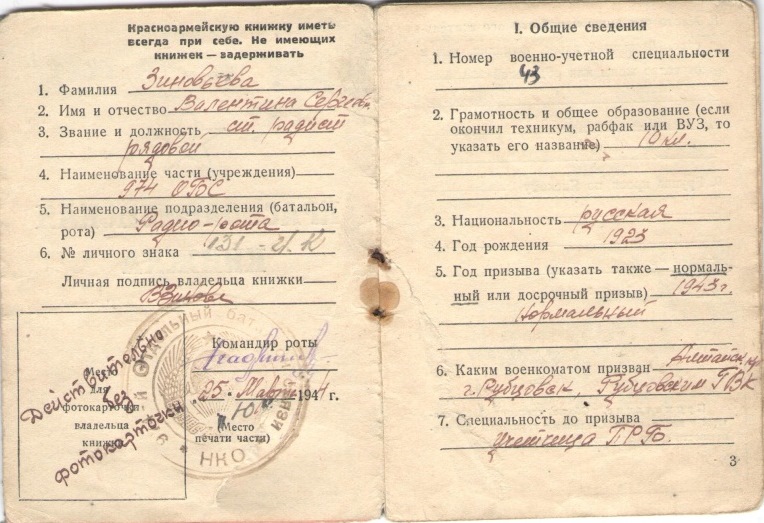 Красноармейскую книжку иметь
всегда при себе. Не имеющих
книжек — задерживать
1. Фамилия Зиновьева
2. Имя и отчество Валентина Сергеевн
3. Звание и должность ст. радист
рядовой
4. Наименование части (учреждения)
974 ОБС
5. Наименование подразделения (батальон,
рота) Радио-рота
6. № личного знака
Личная подпись владельца книжки
Место
для
фотокарточки
владельца
книжки
Действительно
без
фотокарточки
Командир роты
25. Марта 1944 г.
(Место
печати части)
I. Общие сведения
1. Номер военно-учетной специальности
43
2. Грамотность и общее образование (если
окончил техникум, рабфак или ВУЗ, то
указать его название) 10 кл.
3. Национальность русская
4. Год рождения 1923
5. Год призыва (указать также — нормаль-
ный или досрочный призыв) 1943 г.
нормальный
6. Каким военкоматом призван Алтайск. кр.
г. Рубцовск Рубцовским ГВК
7. Специальность до призыва
учетчица
3